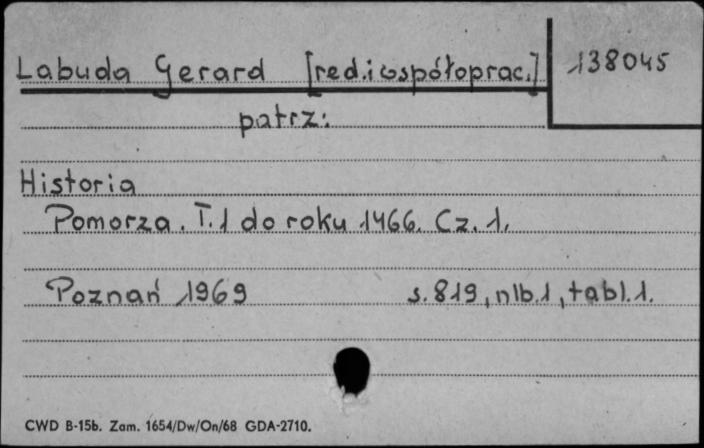 Labuda Gerard [red. i współoprac.] 138045
patrz:
Historia
Pomorza. T.1 do roku 1466. Cz. 1.
Poznań 1969 s. 819, nlb. 1, tabl. 1.
CWD B-15b. Zam. 1654/Dw/On/68 GDA-2710.